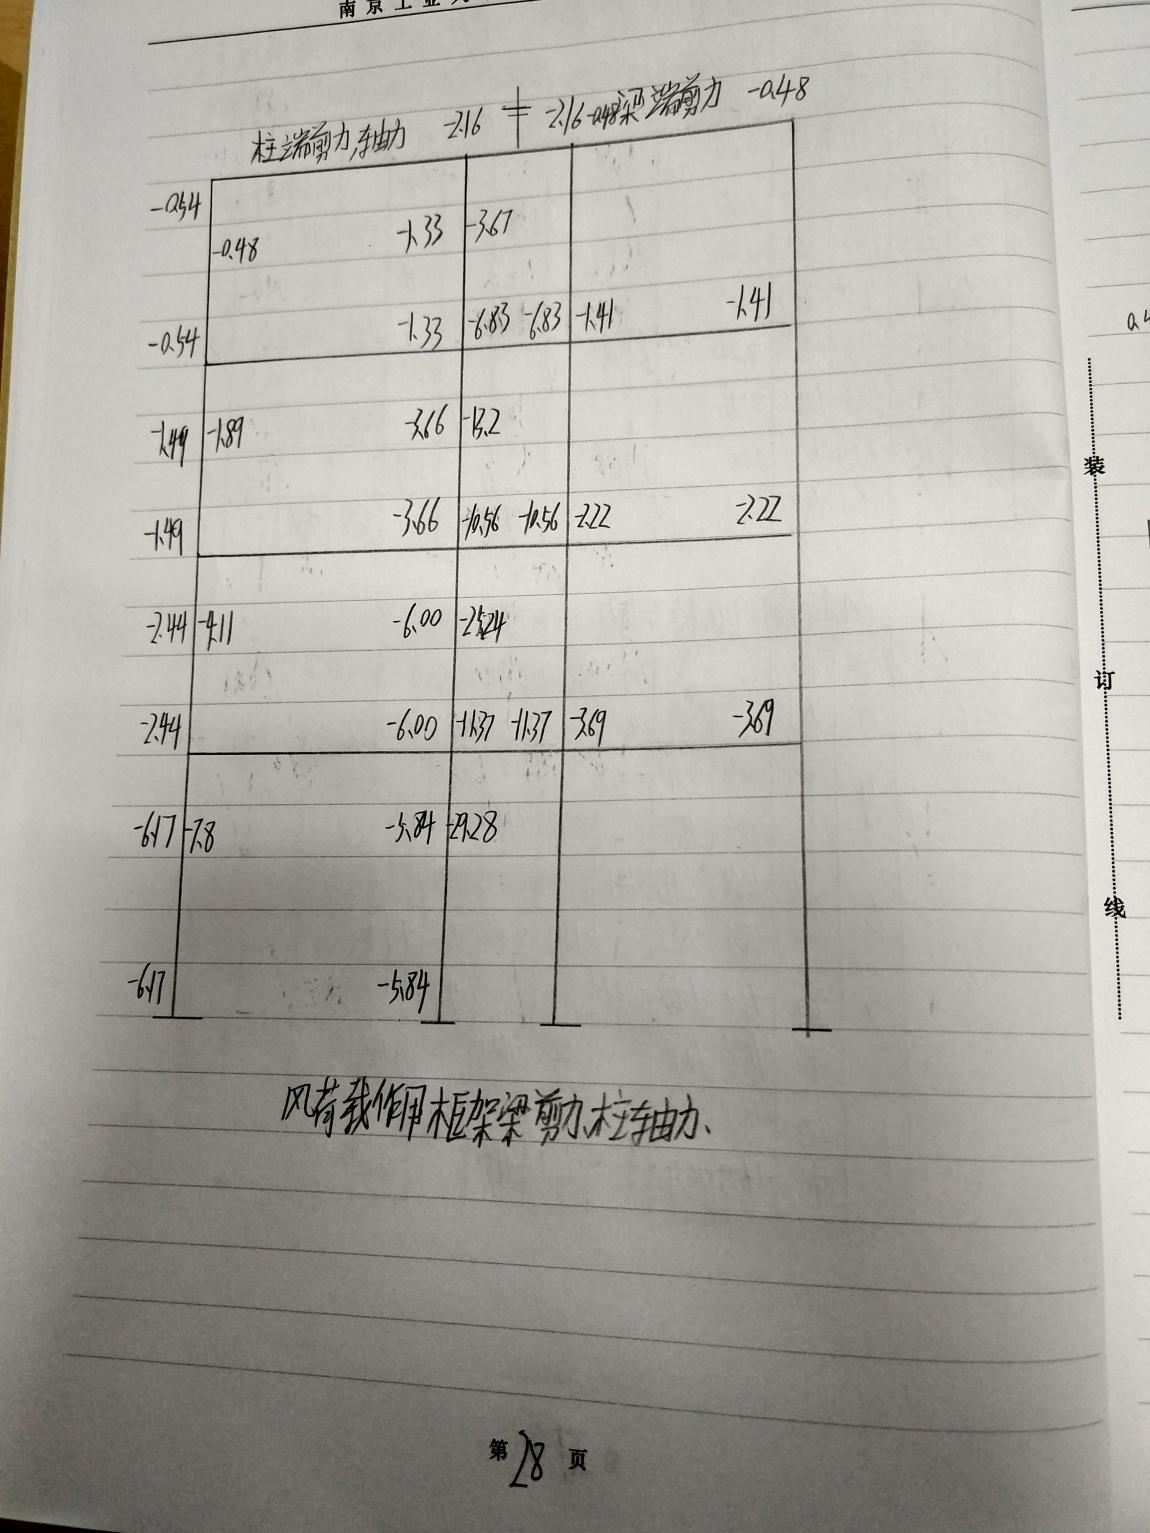 南京工业大
柱端剪力、轴力 -2.16 -2.16 -0.48 梁端剪力 -0.48
-0.54
-0.48 -1.33 -3.67
-0.54 -1.33 -6.83 -6.83 -1.41 -1.41
-1.49 -1.89 -3.66 -13.2
-1.49 -3.66 -10.56 -10.56 -2.22 -2.22
-2.44 -4.11 -6.00 -25.24
-2.44 -6.00 -11.37 -11.37 -3.69 -3.69
-6.17 -7.8 -5.84 -29.28
-6.17 -5.84
风荷载作用框架梁剪力、柱轴力、
第 28 页
装
订
线